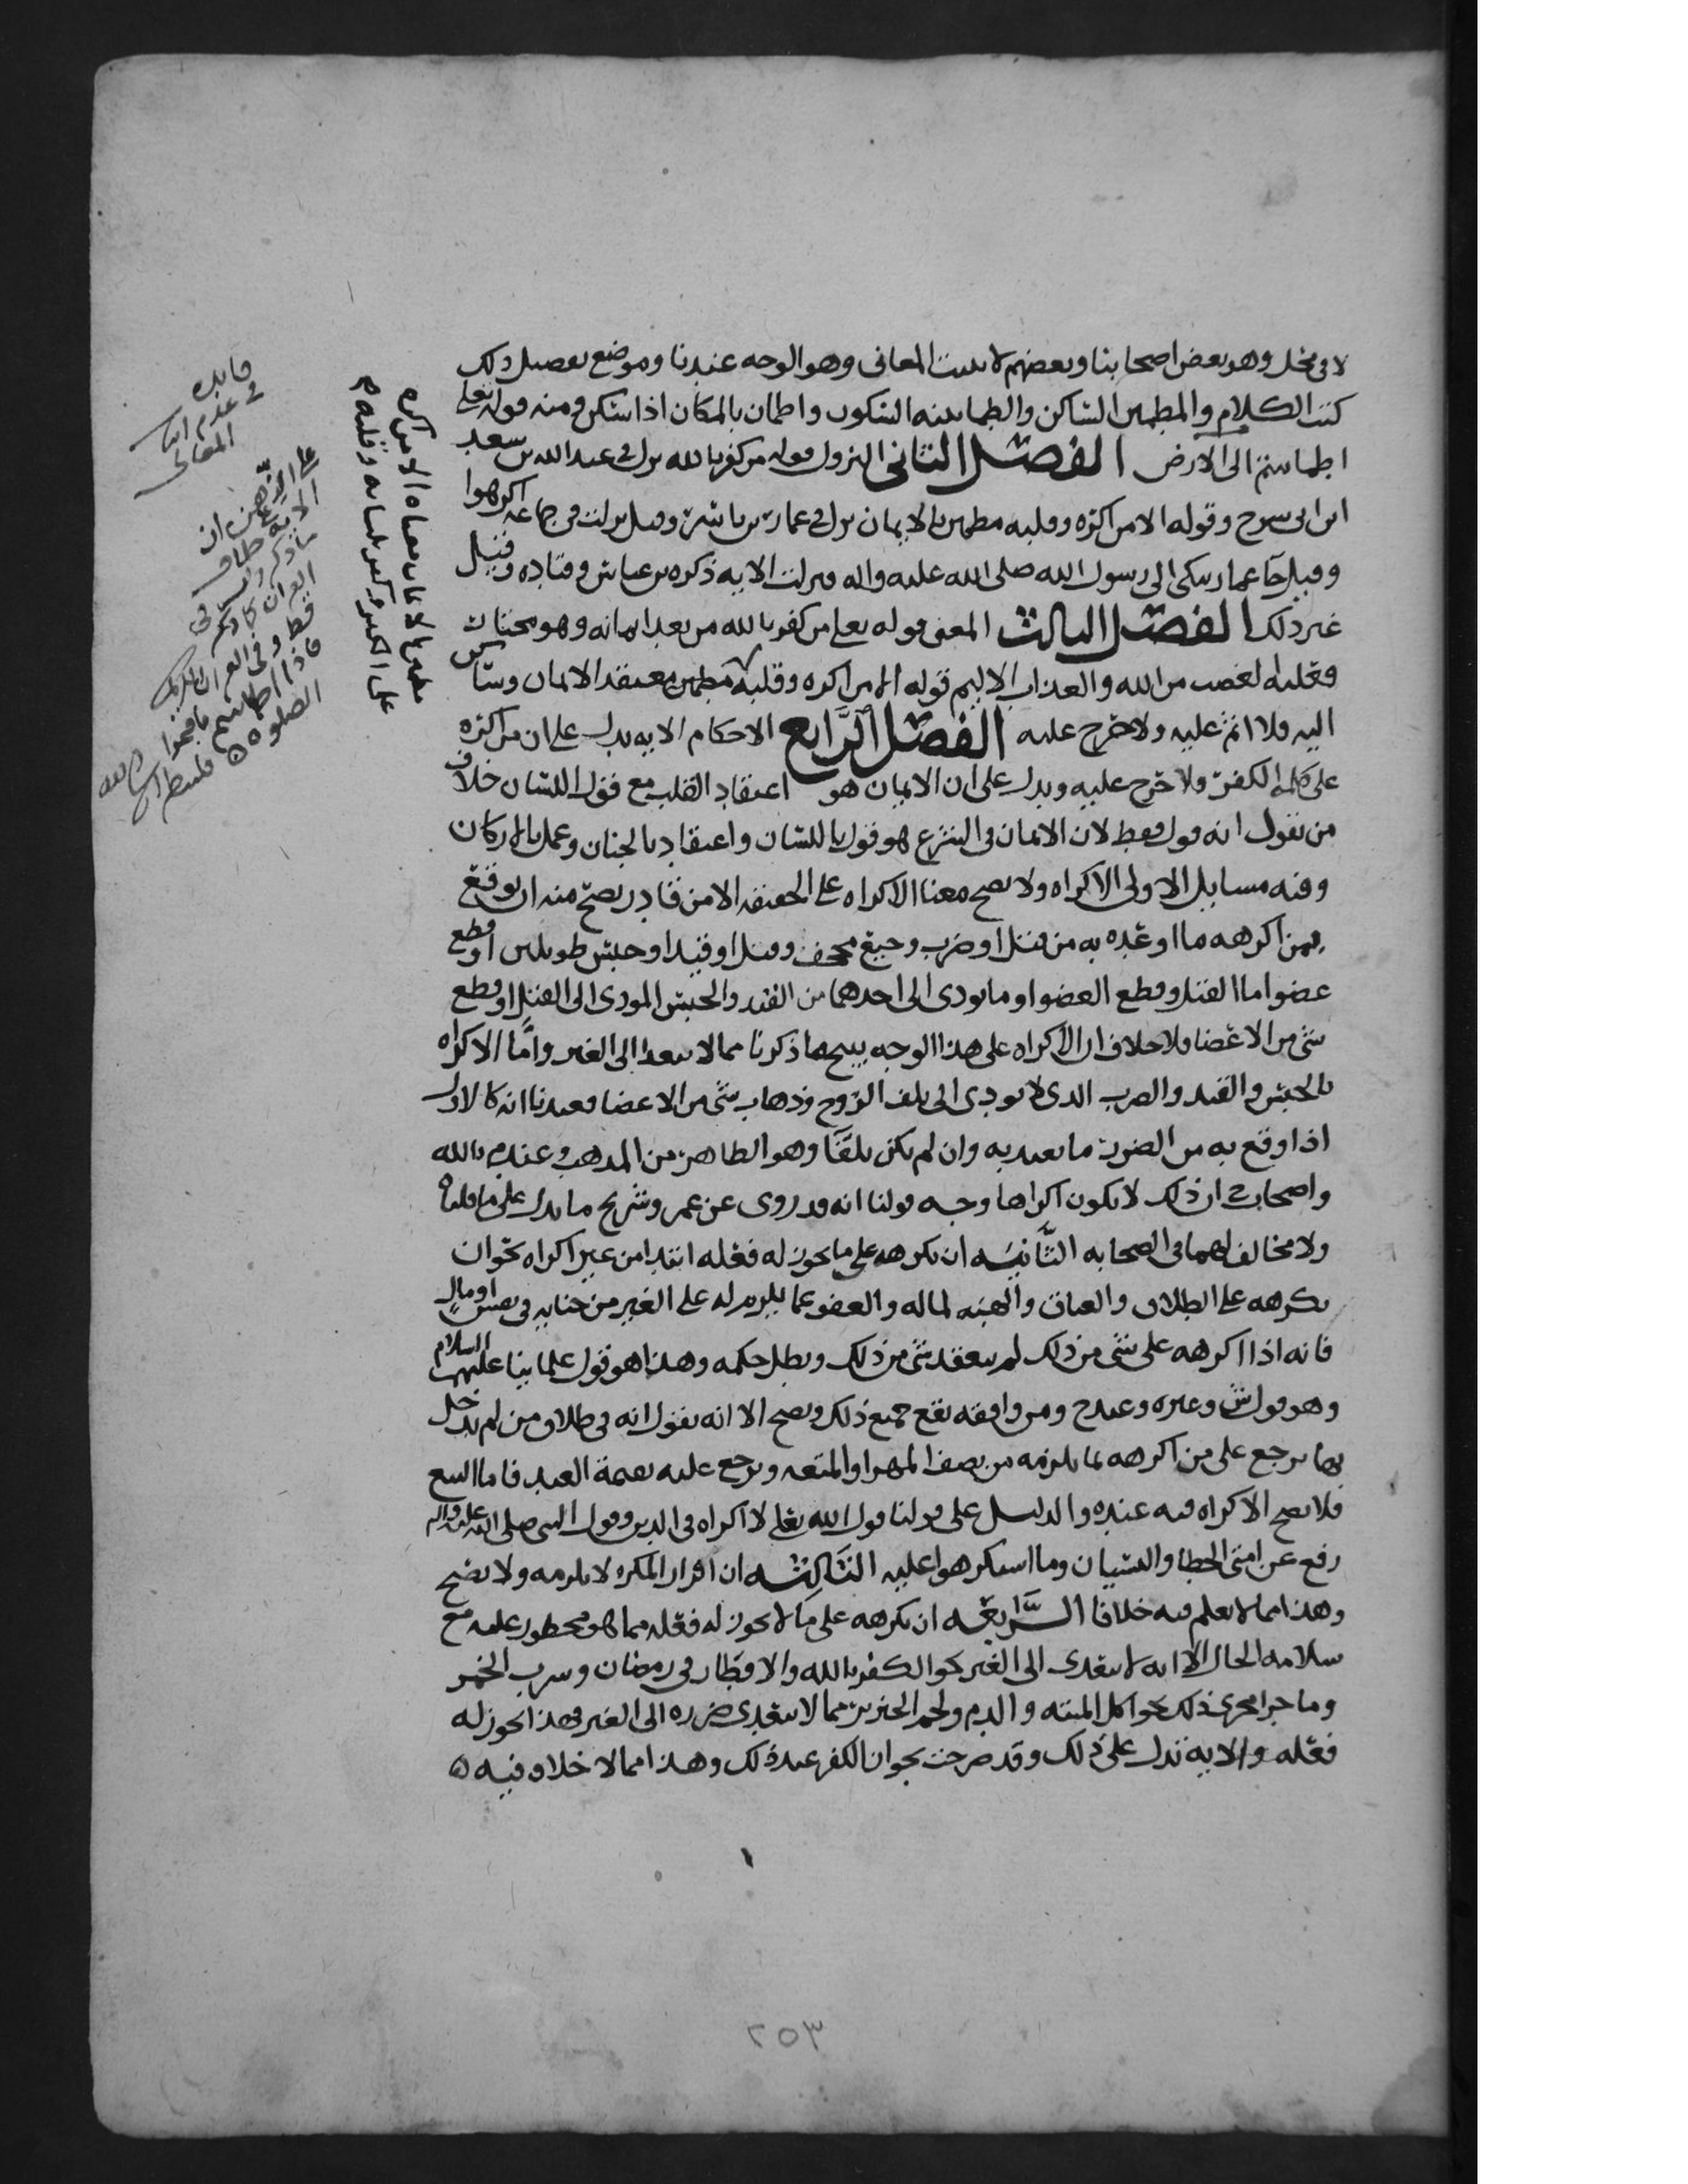 لا في محل وهو بعض اصحابنا وبعضهم لا يثبت المعاني وهو الوجه عندنا وموضع تفصيل ذلك
كتب الكلام والمطمين الساكن والطمانينه السكون واطمان بالمكان اذا سكن ومنه قوله تعلى
اطماننتم الى الارض الفصل الثاني النزول قوله من كفر بالله نزل في عبد الله بن سعد
ابن ابي سرح وقوله الا من اكره وقلبه مطمين بالايمان نزل في عمار بن ياسر وقيل نزلت في جماعه اكرهوا
وقيل جآ عمار يبكي الى رسول الله صلى الله عليه واله فنزلت الايه ذكره بن عباس وقتاده وقيل
غير ذلك الفصل الثالث المعنى قوله تعلى من كفر بالله من بعد ايمانه وهو مختار
فعليه الغضب من الله والعذاب الاليم قوله الا من اكره وقلبه مطمين معتقد الايمان وساكن
اليه فلا اثم عليه ولا حرج عليه الفصل الرابع الاحكام الايه تدل على ان من اكره
على كلمة الكفر ولا حرج عليه ويدل على ان الايمان هو اعتقاد القلب مع قول اللسان خلاف
من يقول انه قول فقط لان الايمان في الشرع هو قول باللسان واعتقاد بالجنان وعمل بالاركان
وفيه مسايل الاولى الاكراه ولا يصح معنا الاكراه على الحقيقه الا من قادر يصح منه ان يوقع
بمن اكرهه ما اوعده به من قتل او ضرب وجيع مجحف وقتل او قيد او حبس طويلين او قطع
عضو اما القتل وقطع العضو او ما يودي الى احدهما من القيد والحبس المودي الى القتل او قطع
شي من الاعضا فلا خلاف ان الاكراه على هذا الوجه يبيح ما ذكرنا مما لا يتعدا الى الغير وامَّا الاكراه
بالحبس والقيد والضرب الذي لا يودي الى تلف الروح وذهاب شي من الاعضا فعندنا انه كالاول
اذا وقع به من الضرر ما يعتد به وان لم يكن تلفًا وهو الظاهر من المذهب وعند م بالله
واصحاب ح ان ذلك لا يكون اكراها وجه قولنا انه قد روي عن عمر وشريح ما يدل على ما قلناه
ولا مخالف لهما في الصحابه الثَّانيَه ان يكرهه على ما يجوز له فعله ابتدا من غير اكراه نحو ان
يكرهه على الطلاق والعتاق والهبه لماله والعفو عما يلزم له على الغير من جنايه في نفس او مالٍ
فانه اذا اكرهه على شي من ذلك لم ينعقد شي من ذلك وبطل حكمه وهذا هو قول علماينا عليهم السلام
وهو قول ش وغيره وعند ح ومن وافقه يقع جميع ذلك ويصح الا انه يقول انه في طلاق من لم يدخل
بها يرجع على من اكرهه بما يلزمه من نصف المهر او المتعه ويرجع عليه بقيمة العبد فاما البيع
فلا يصح الاكراه فيه عنده والدليل على قولنا قول الله تعلى لا اكراه في الدين وقول النبي صلى الله عليه واله
رفع عن امتي الخطا والنسيان وما استكرهوا عليه الثَّالِثَه ان اقرار المكره لا يلزمه ولا يصح
وهذا مما لا نعلم فيه خلافا الرَّابعَه ان يكرهه على ما لا يجوز له فعله مما هو محظور عليه مع
سلامه الحال الا انه لا يتعدى الى الغير نحو الكفر بالله والافطار في رمضان وشرب الخمر
وما جرا مجرى ذلك نحو اكل الميته والدم ولحم الخنزير مما لا يتعدى ضرره الى الغير فهذا يجوز له
فعله والايه تدل على ذلك وقد صرحت بجواز الكفر عند ذلك وهذا مما لا خلاف فيه
فايده
في عدم اثبات
المعاني
الا من اكره
وقلبه م
القران
فاذا اطماننتم فاقيموا
الصلوه
٢٥٣